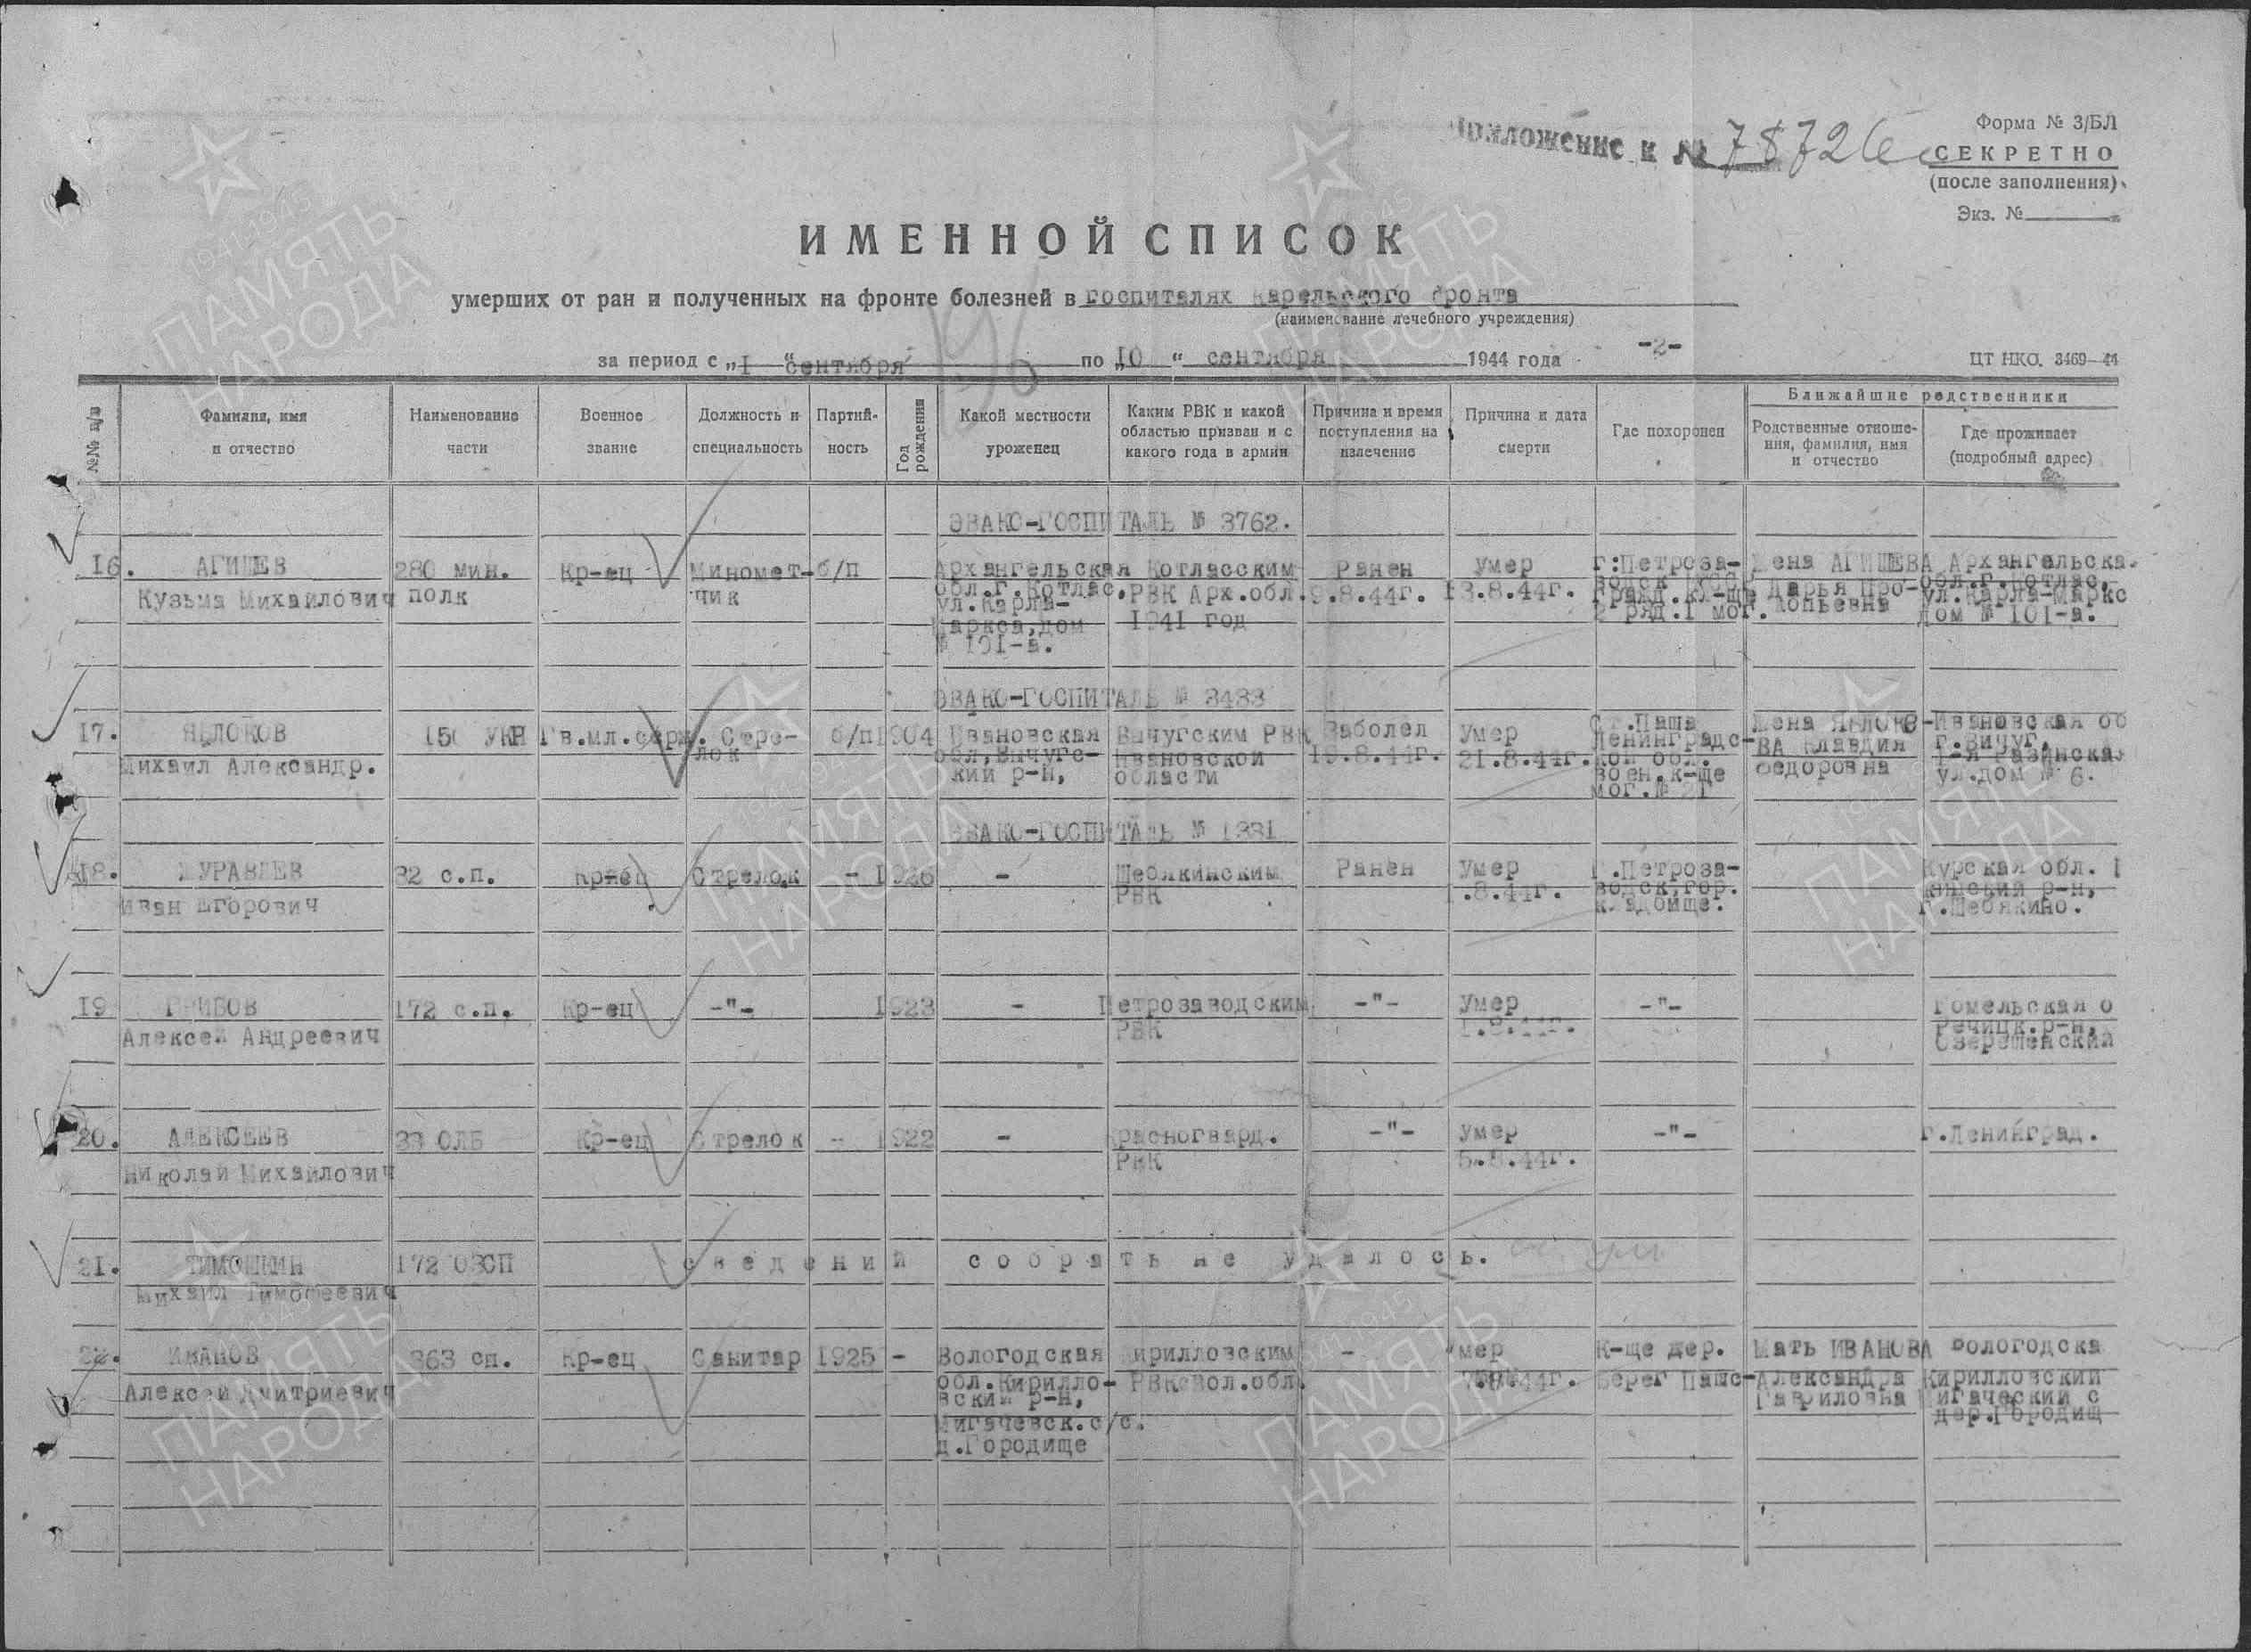 Приложение к № 78726с
Форма № 3/БЛ
СЕКРЕТНО
(после заполнения)
Экз. №
ИМЕННОЙ СПИСОК
умерших от ран и полученных на фронте болезней в госпиталях Карельского фронта
(наименование лечебного учреждения)
за период с „1“ сентября по „10“ сентября 1944 года
-2-
ЦТ НКО. 3469—44
№№ п/п
Фамилия, имя и отчество
Наименование части
Военное звание
Должность и специальность
Партийность
Год рождения
Какой местности уроженец
Каким РВК и какой областью призван и с какого года в армии
Причина и время поступления на излечение
Причина и дата смерти
Где похоронен
Ближайшие родственники
Родственные отношения, фамилия, имя и отчество
Где проживает (подробный адрес)
ЭВАКО-ГОСПИТАЛЬ № 3762.
16. АГИШЕВ Кузьма Михайлович
280 мин. полк
Кр-ец
Миномет-чик
б/п
Архангельская обл.г.Котлас, ул.Карла-Маркса,дом № 101-а.
Котласским РВК Арх.обл. 1941 год
Ранен 9.8.44г.
Умер 13.8.44г.
г.Петроза-водск КФССР Гражд.кл-ще 2 ряд.1 мог.
Жена АГИШЕВА Дарья Про-копьевна
Архангельска обл.г.Котлас, ул.Карла-Маркс дом № 101-а.
ЭВАКО-ГОСПИТАЛЬ № 3433
17. ЯБЛОКОВ Михаил Александр.
150 УКР
Гв.мл.серж.
Стре-лок
б/п
1904
Ивановская обл,Вичугс-кий р-н,
Вичугским РВК Ивановской области
Заболел 19.8.44г.
Умер 21.8.44г.
Ст.Паша Ленинградс-кой обл. воен.к-ще мог.№ 21
Жена ЯБЛОКО-ВА Клавдия Федоровна
Ивановская об г.Вичуг, 1-я Разинская ул.дом № 6.
ЭВАКО-ГОСПИТАЛЬ № 1331
18. ЖУРАВЛЕВ Иван Егорович
32 с.п.
Кр-ец
Стрелок
-
1926
-
Шебякинским РВК
Ранен
Умер 1.8.44г.
Г.Петроза-водск,гор. кладбище.
Курская обл.
р-н,
г.Шебякино.
19 ГРИБОВ Алексей Андреевич
172 с.п.
Кр-ец
-"-
1923
-
Петрозаводским РВК
-"-
Умер
-"-
Гомельская о Речицк.р-н,
20. АЛЕКСЕЕВ Николай Михайлович
33 ОЛБ
Кр-ец
Стрелок
-
1922
-
Красногвард. РВК
-"-
Умер 5.8.44г.
-"-
г.Ленинград.
21. ТИМОШКИН Михаил Тимофеевич
172 ОЗСП
сведений собрать не удалось.
22. ИВАНОВ Алексей Дмитриевич
363 сп.
Кр-ец
Санитар
1925
-
Вологодская обл.Кирилло-вский р-н, Мигачевск.с/с. д.Городище
Кирилловским РВК Вол.обл.
-
Умер
К-ще дер. Берег Пашс-
Мать ИВАНОВА Александра Гавриловна
Вологодска Кирилловский Мигаческий с дер.Городищ
1941-1945
ПАМЯТЬ
НАРОДА